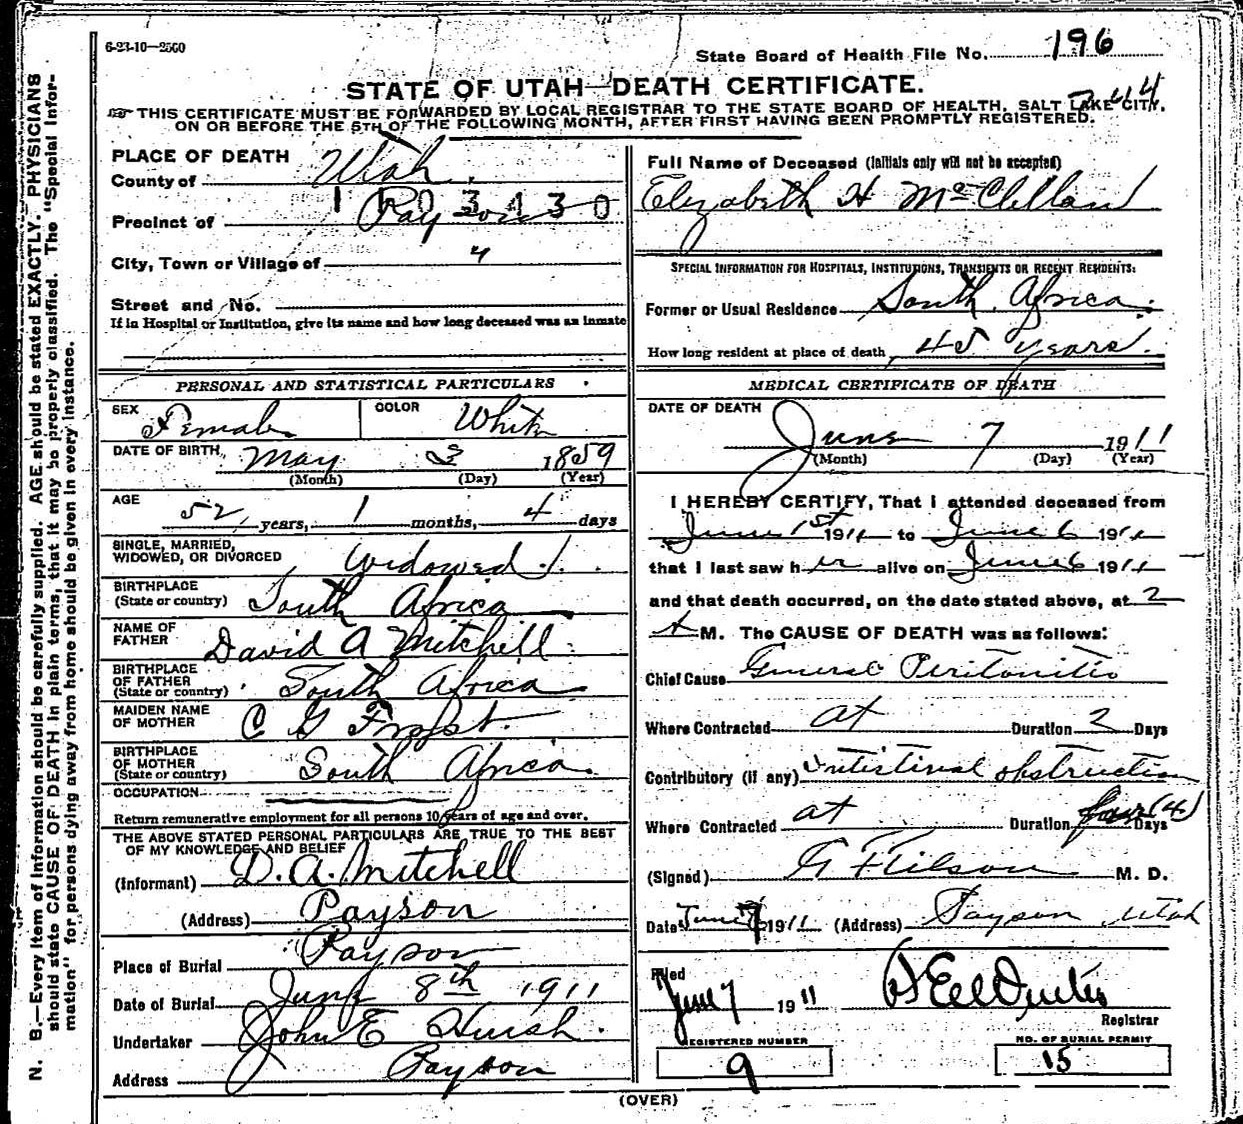 6-23-10—2500
State Board of Health File No. 196
STATE OF UTAH—DEATH CERTIFICATE.
244
☞ THIS CERTIFICATE MUST BE FORWARDED BY LOCAL REGISTRAR TO THE STATE BOARD OF HEALTH, SALT LAKE CITY,
ON OR BEFORE THE 5TH OF THE FOLLOWING MONTH, AFTER FIRST HAVING BEEN PROMPTLY REGISTERED.
N. B.—Every item of information should be carefully supplied. AGE should be stated EXACTLY. PHYSICIANS
should state CAUSE OF DEATH in plain terms, that it may be properly classified. The "Special Infor-
mation" for persons dying away from home should be given in every instance.
PLACE OF DEATH
County of Utah
Precinct of Payson
City, Town or Village of "
Street and No.
If in Hospital or Institution, give its name and how long deceased was an inmate
PERSONAL AND STATISTICAL PARTICULARS
SEX Female COLOR White
DATE OF BIRTH May 3 1859
(Month) (Day) (Year)
AGE 52 years, 1 months, 4 days
SINGLE, MARRIED,
WIDOWED, OR DIVORCED Widowed
BIRTHPLACE
(State or country) South Africa
NAME OF
FATHER David A Mitchell
BIRTHPLACE
OF FATHER
(State or country) South Africa
MAIDEN NAME
OF MOTHER C G Frost
BIRTHPLACE
OF MOTHER
(State or country) South Africa
OCCUPATION
Return remunerative employment for all persons 10 years of age and over.
THE ABOVE STATED PERSONAL PARTICULARS ARE TRUE TO THE BEST
OF MY KNOWLEDGE AND BELIEF
(Informant) D. A. Mitchell
(Address) Payson
Place of Burial Payson
Date of Burial June 8th 1911
Undertaker John E Huish
Address Payson
Full Name of Deceased (Initials only will not be accepted)
Elizabeth H McClelland
SPECIAL INFORMATION FOR HOSPITALS, INSTITUTIONS, TRANSIENTS OR RECENT RESIDENTS:
Former or Usual Residence South Africa
How long resident at place of death, 45 years.
MEDICAL CERTIFICATE OF DEATH
DATE OF DEATH
June 7 1911
(Month) (Day) (Year)
I HEREBY CERTIFY, That I attended deceased from
June 1st 1911 to June 6 1911
that I last saw her alive on June 6 1911
and that death occurred, on the date stated above, at 2
M. The CAUSE OF DEATH was as follows:
Chief Cause General Peritonitis
Where Contracted at Duration 2 Days
Contributory (if any) Intestinal obstruction
Where Contracted at Duration four (4) Days
(Signed) M. D.
Date June 7 1911 (Address) Payson Utah
Filed
June 7 1911
Registrar
REGISTERED NUMBER
9
NO. OF BURIAL PERMIT
15
(OVER)